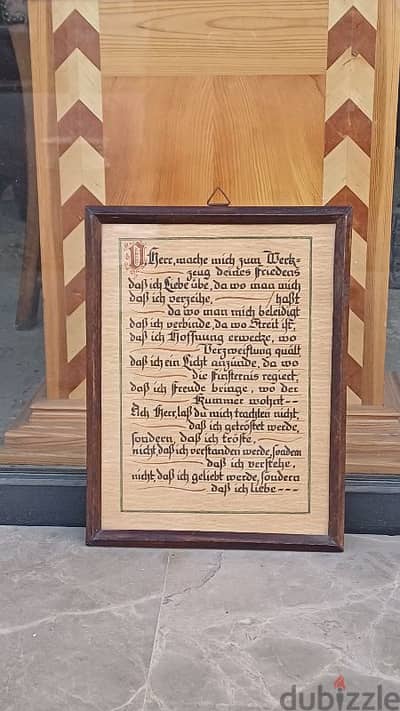 O, Herr, mache mich zum Werk-
zeug deines Friedens
daß ich Liebe übe, da wo man mich
daß ich verzeihe, haßt
da wo man mich beleidigt
daß ich verbinde, da wo Streit ist,
daß ich Hoffnung erwecke, wo
Verzweiflung quält
daß ich ein Licht anzünde, da wo
die Finsternis regiert,
daß ich Freude bringe, wo der
Kummer wohnt--
Ach Herr, laß du mich trachten nicht,
daß ich getröstet werde,
sondern, daß ich tröste,
nicht, daß ich verstanden werde, sondern
daß ich verstehe,
nicht, daß ich geliebt werde, sondern
daß ich liebe---
dubizzle